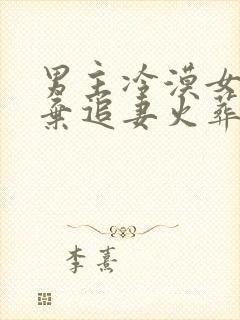 男主冷漠女
弃追妻火葬
李熹